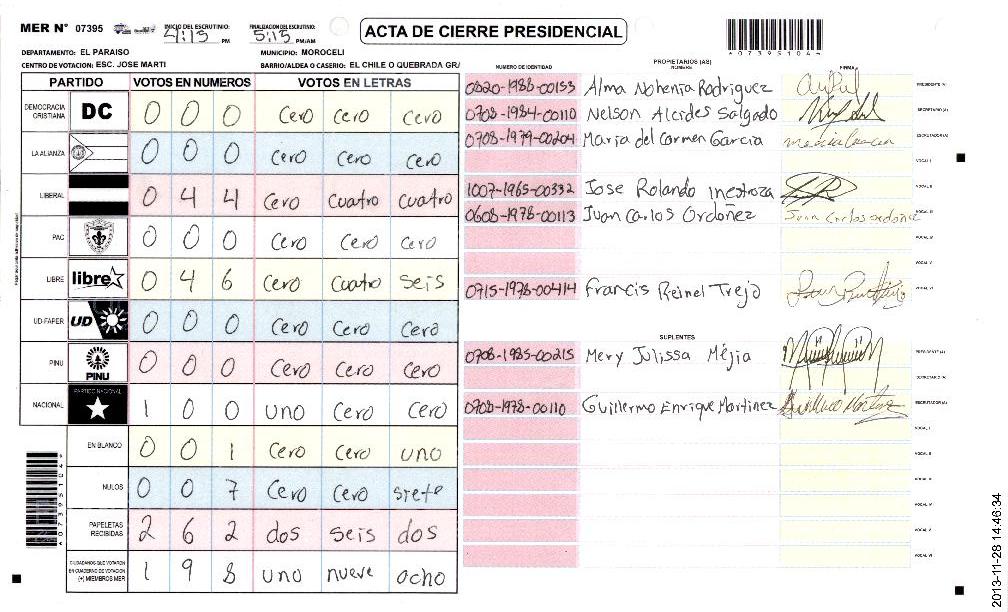 MER N° 07395
INICIO DEL ESCRUTINIO: 4:15 PM
FINALIZACION DEL ESCRUTINIO: 5:15 PM/AM
ACTA DE CIERRE PRESIDENCIAL
A07395104
DEPARTAMENTO: EL PARAISO
MUNICIPIO: MOROCELI
CENTRO DE VOTACION: ESC. JOSE MARTI
BARRIO/ALDEA O CASERIO: EL CHILE O QUEBRADA GR/
PARTIDO VOTOS EN NUMEROS VOTOS EN LETRAS
DEMOCRACIA CRISTIANA DC 0 0 0 Cero cero cero
LA ALIANZA 0 0 0 Cero Cero Cero
LIBERAL 0 4 4 Cero cuatro cuatro
PAC 0 0 0 Cero Cero cero
LIBRE libre 0 4 6 Cero Cuatro seis
UD-FAPER UD 0 0 0 Cero Cero Cero
PINU PINU 0 0 0 Cero Cero Cero
NACIONAL PARTIDO NACIONAL 1 0 0 uno Cero Cero
EN BLANCO 0 0 1 Cero Cero uno
NULOS 0 0 7 Cero Cero siete
PAPELETAS RECIBIDAS 2 6 2 dos seis dos
CIUDADANOS QUE VOTARON EN CUADERNO DE VOTACION (+) MIEMBROS MER 1 9 8 uno nueve ocho
NUMERO DE IDENTIDAD PROPIETARIOS (AS) NOMBRE FIRMA
0820-1988-00153 Alma Nohenia Rodriguez PRESIDENTE (A)
0708-1984-00110 Nelson Alcides Salgado SECRETARIO (A)
0708-1979-00204 Maria del Carmen Garcia ESCRUTADOR (A)
VOCAL I
1007-1965-00332 Jose Rolando Inestroza VOCAL II
0608-1978-00113 Juan Carlos Ordoñez Juan Carlos Ordoñez VOCAL III
VOCAL IV
VOCAL V
0715-1978-00414 Francis Reinel Trejo VOCAL VI
SUPLENTES
0708-1985-00215 Mery Julissa Méjia PRESIDENTE (A)
SECRETARIO (A)
0708-1978-00110 Guillermo Enrique Martinez Guillermo Martinez ESCRUTADOR (A)
VOCAL I
VOCAL II
VOCAL III
VOCAL IV
VOCAL V
VOCAL VI
A07395104
2013-11-28 14:46:34